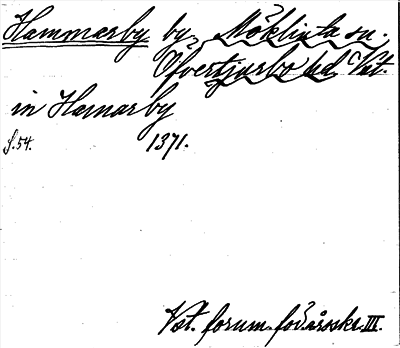 Hammarby by, Möklinta sn.
Öfvertjurbo hd. Vst.
in Hamarby
s. 54. 1371.
Vst. fornm. för. årsskr. III.